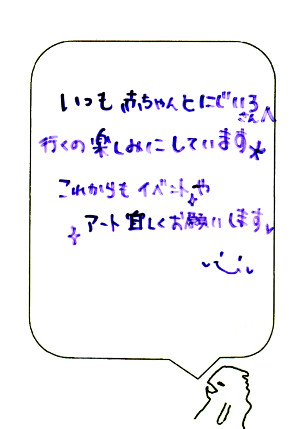 いつも 赤ちゃんとにじいろさんへ
行くの楽しみにしています★
これからも イベントや
アート宜しくお願いします